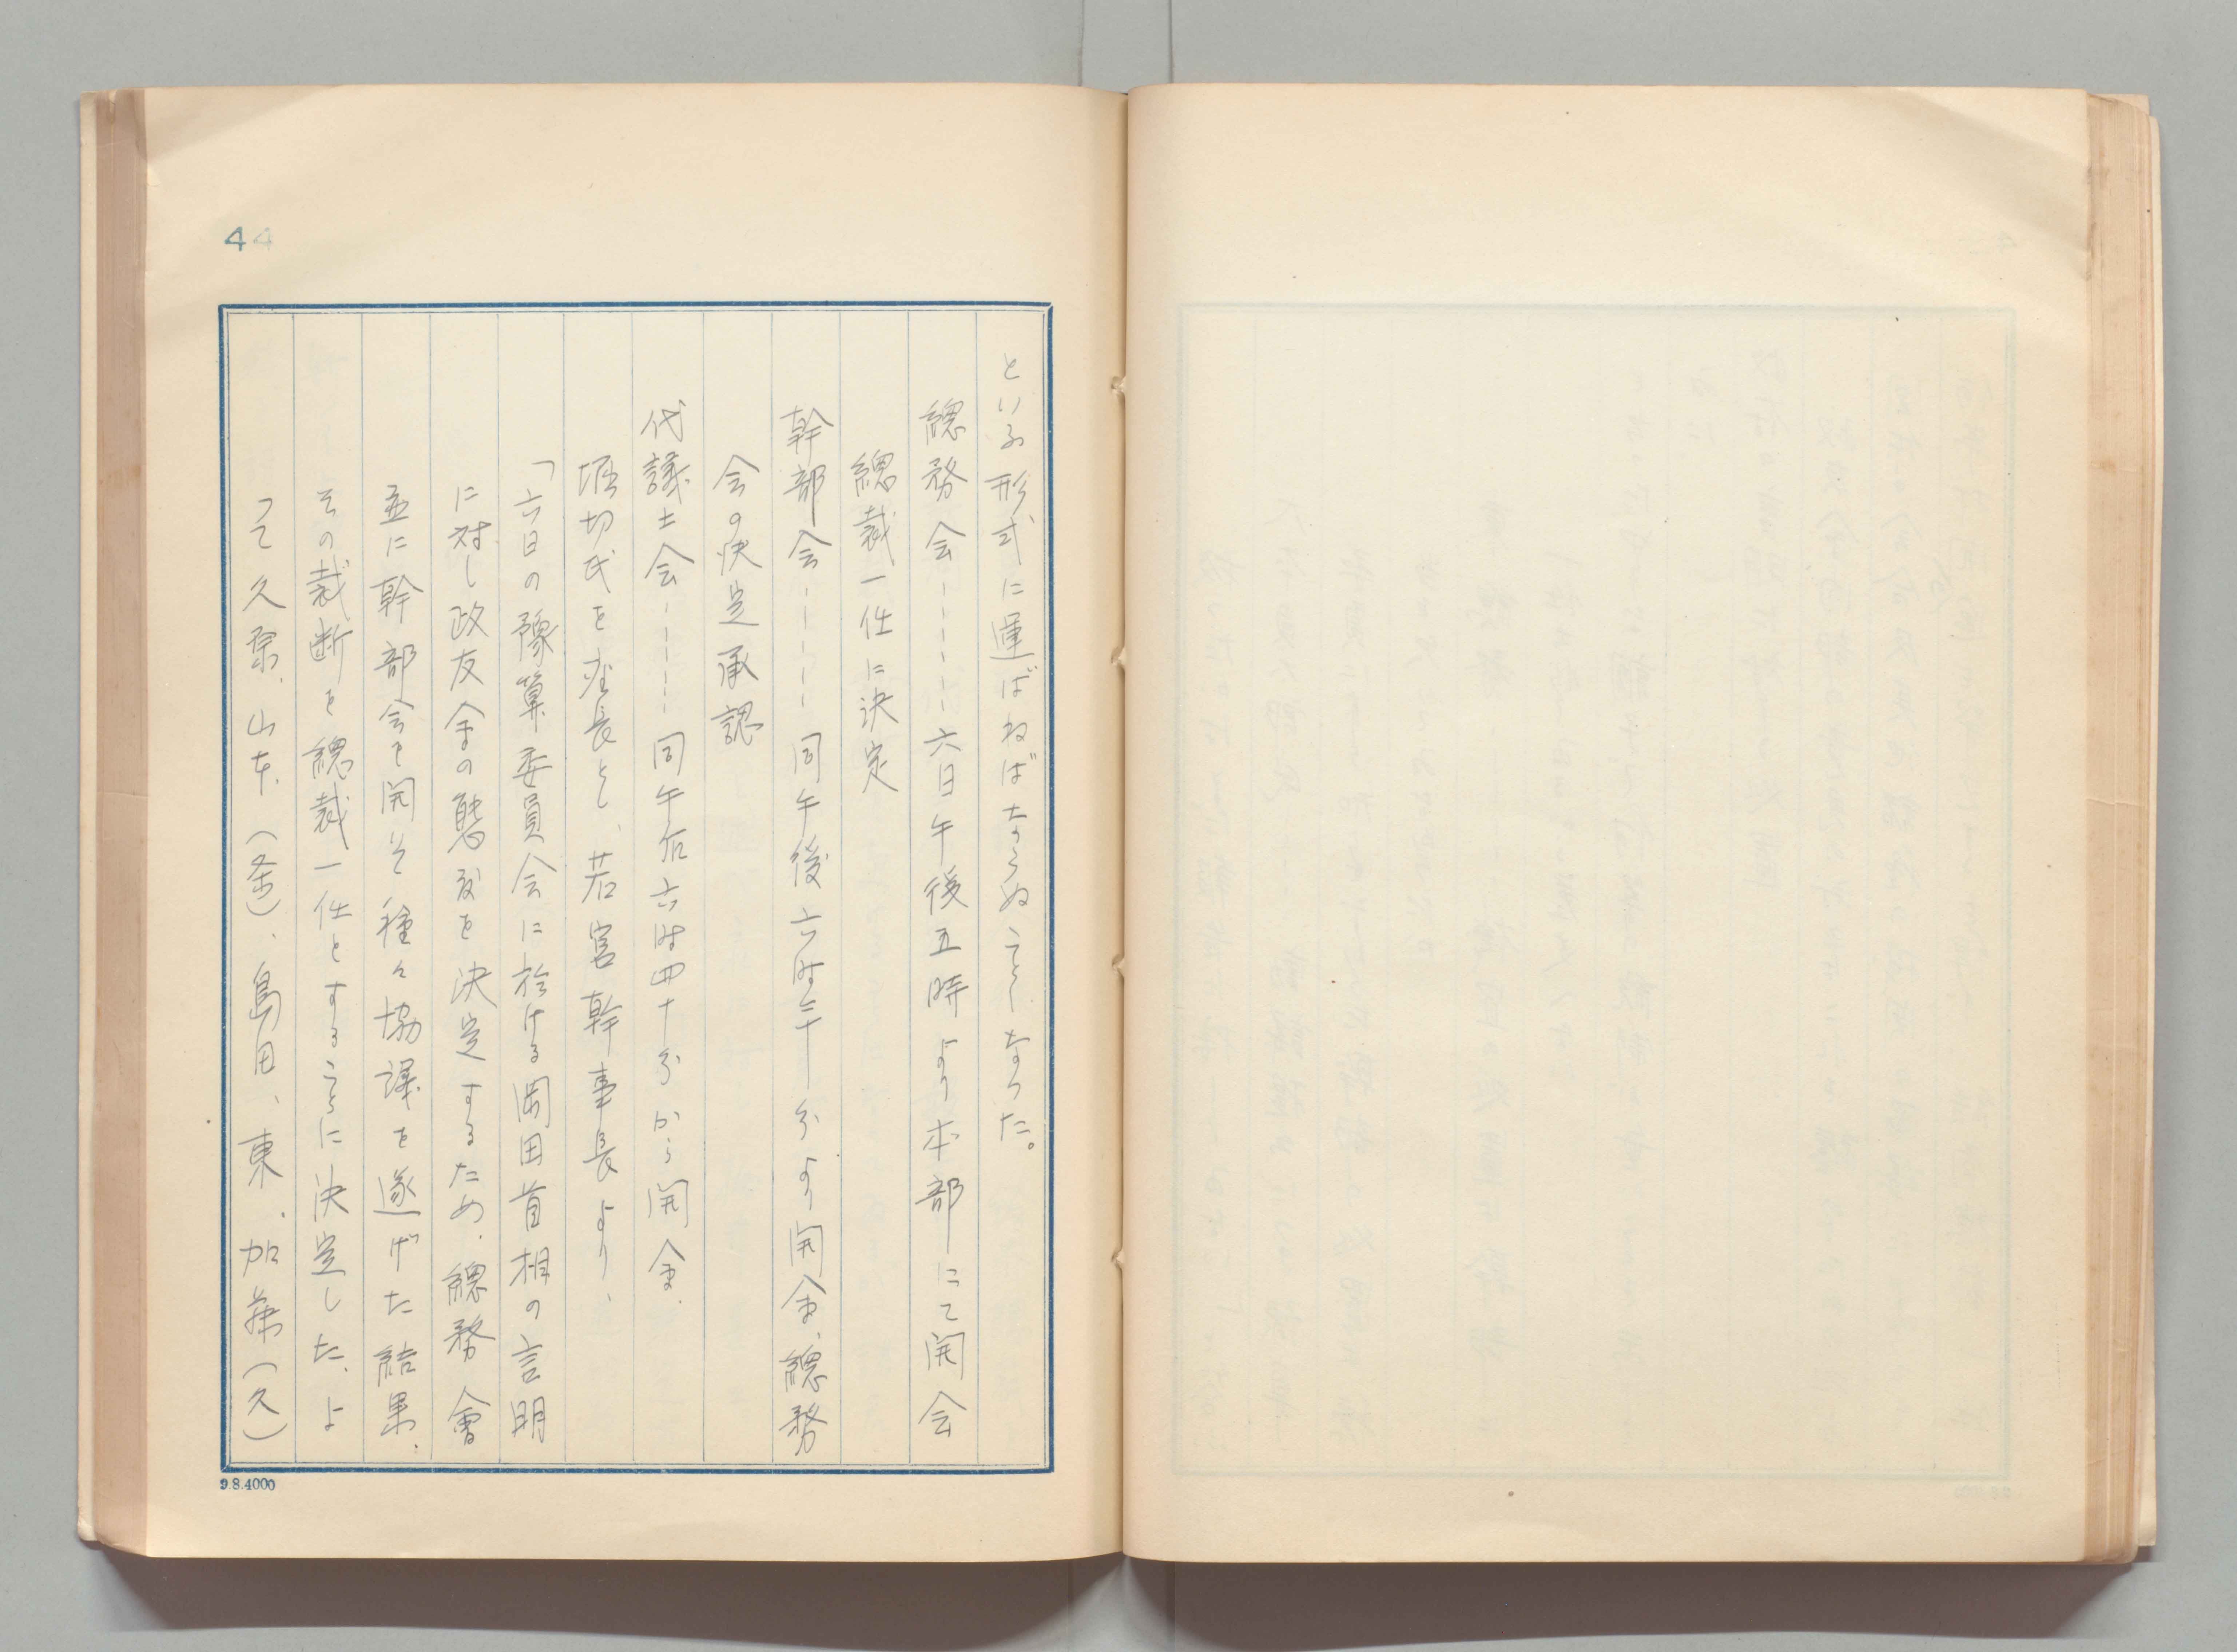 44
といふ形式に運ばねばならぬことゝなつた。
總務会‥‥‥六日午後五時より本部にて開会
總裁一任に決定
幹部会‥‥‥同午後六時二十分より開会、總務
会の決定承認
代議士会‥‥‥同午后六時四十分から開会、
堀切氏を座長とし、若宮幹事長より、
「六日の豫算委員会に於ける岡田首相の言明
に対し政友会の態度を決定するため、總務會
並に幹部会を開き種々協議を遂げた結果、
その裁断を總裁一任とすることに決定した、よ
つて久原、山本(条)、島田、東、加藤(久)
9.8.4000